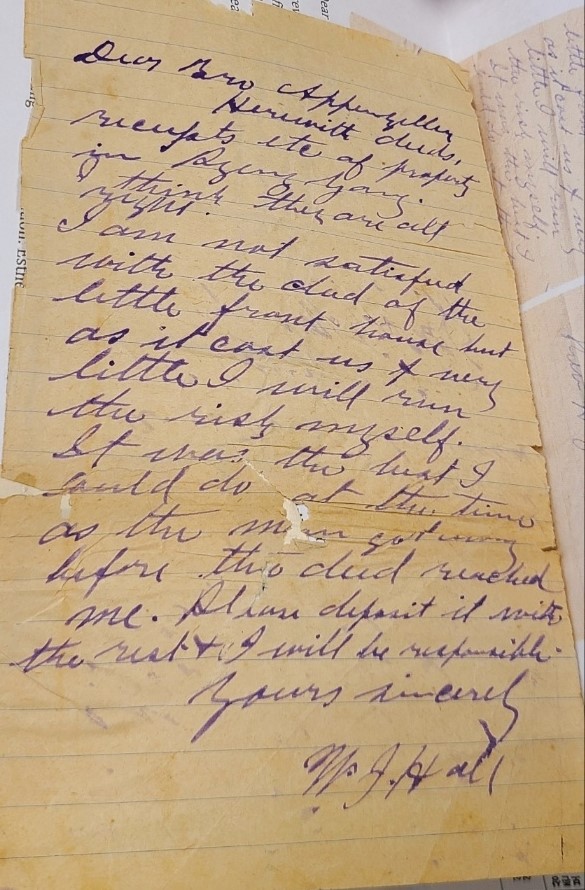 Dear Bro Appenzeller
Herewith deeds,
receipts etc of property
in Pyeng Yang.
I think they are all
right.
I am not satisfied
with the deed of the
little front house but
as it cost us very
little I will run
the risk myself.
It was the best I
could do at the time
as the man got away
before the deed reached
me. Please deposit it with
the rest & I will be responsible.
Yours sincerely
W. J. Hall